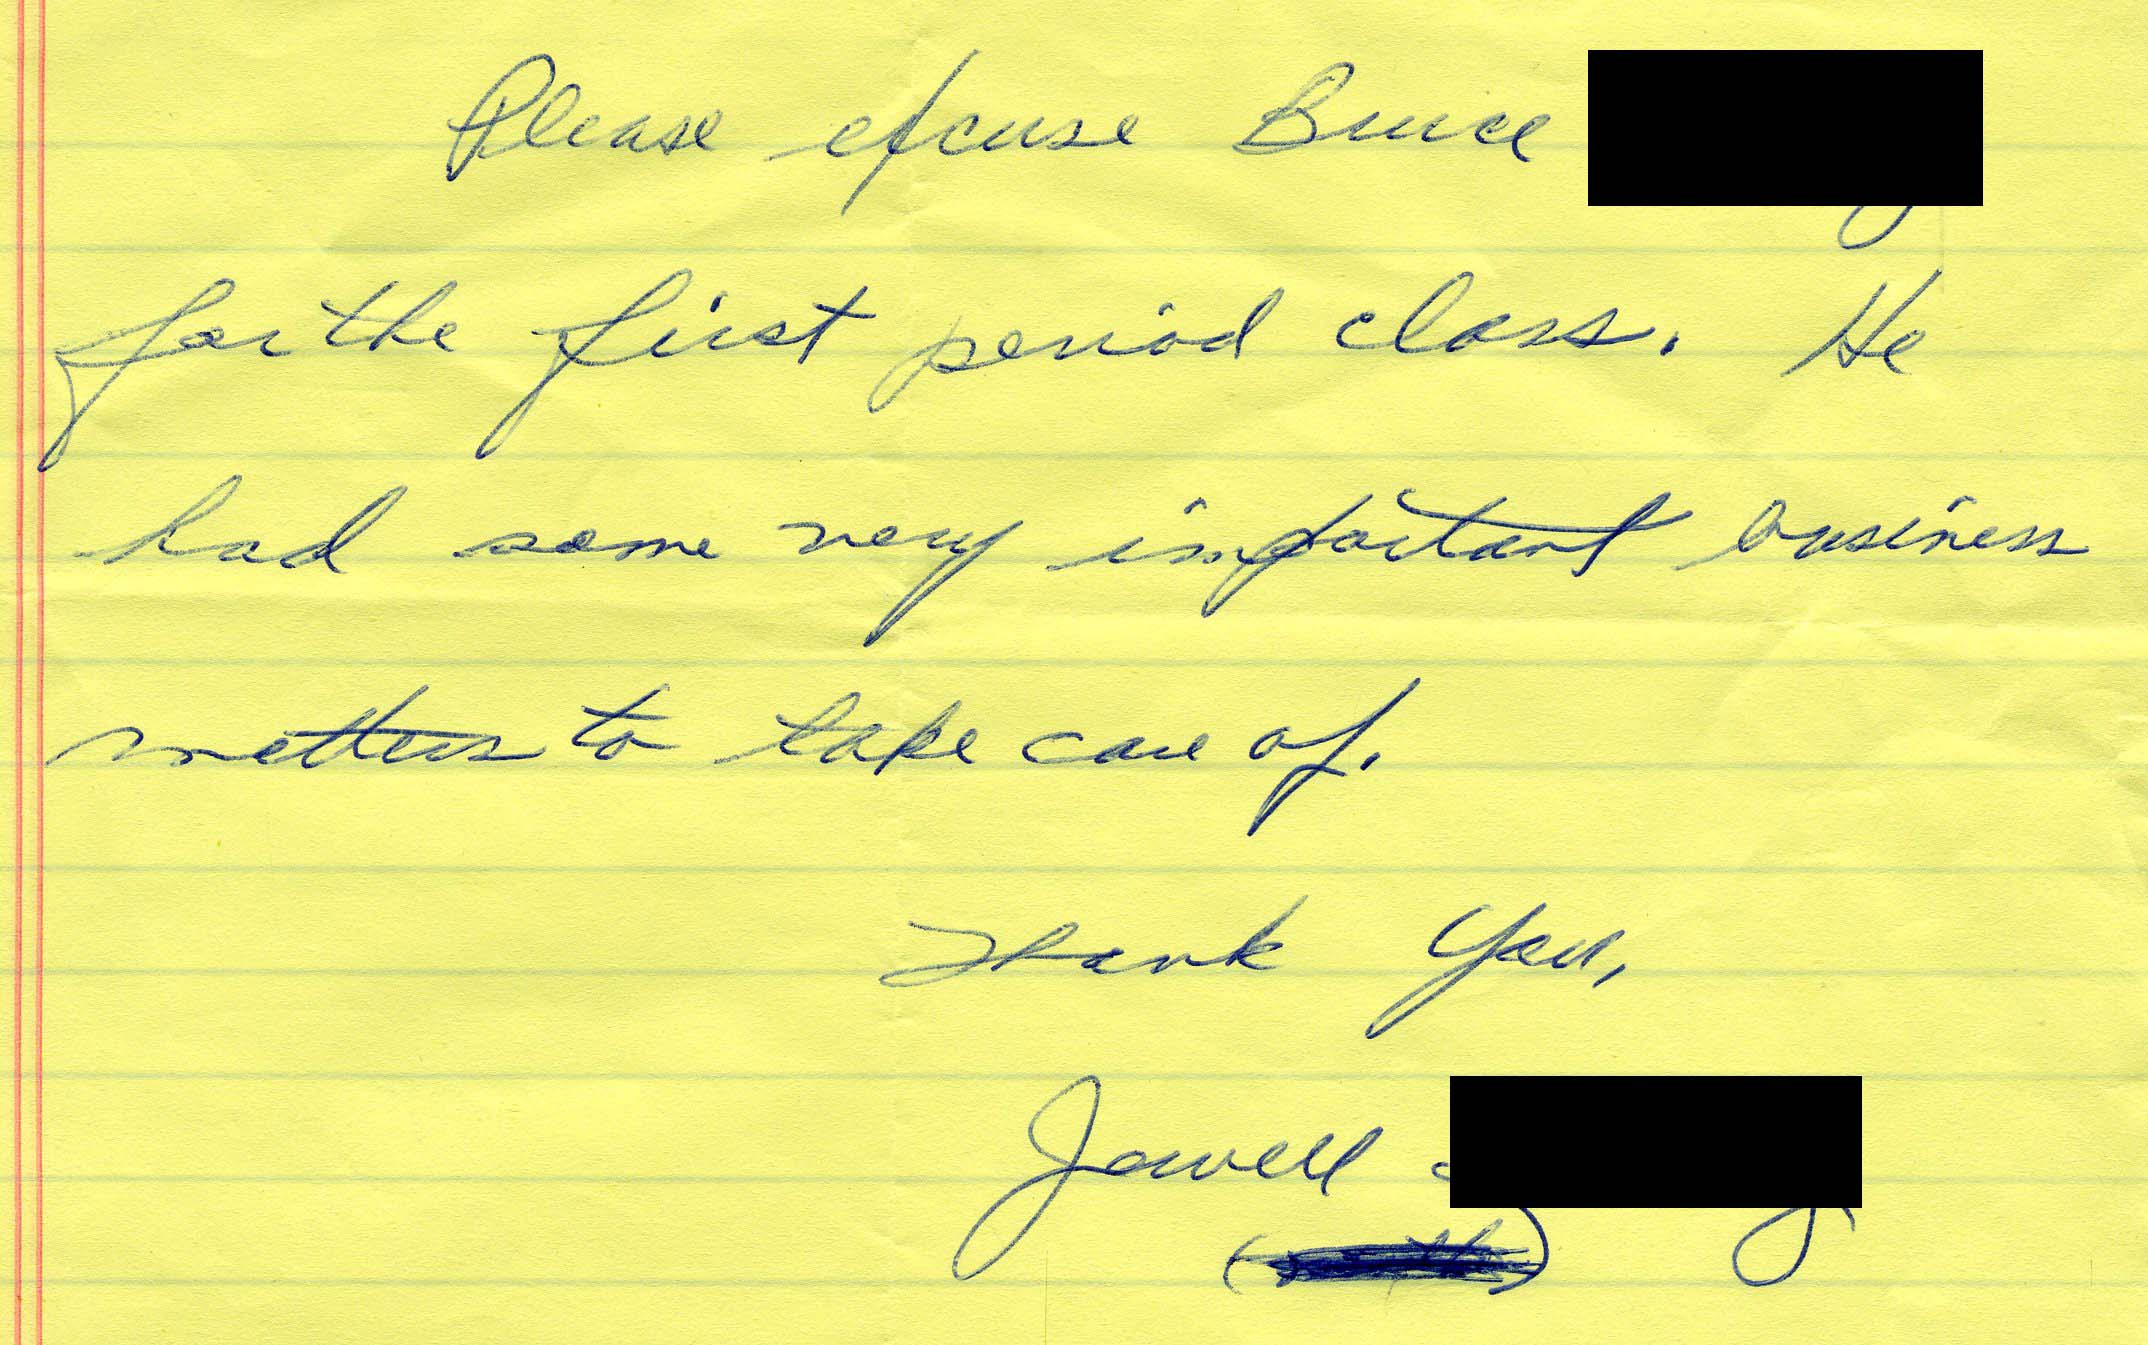 Please excuse Bruce
for the first period class. He
had some very important business
metters to take care of.
Thank You,
Jowell